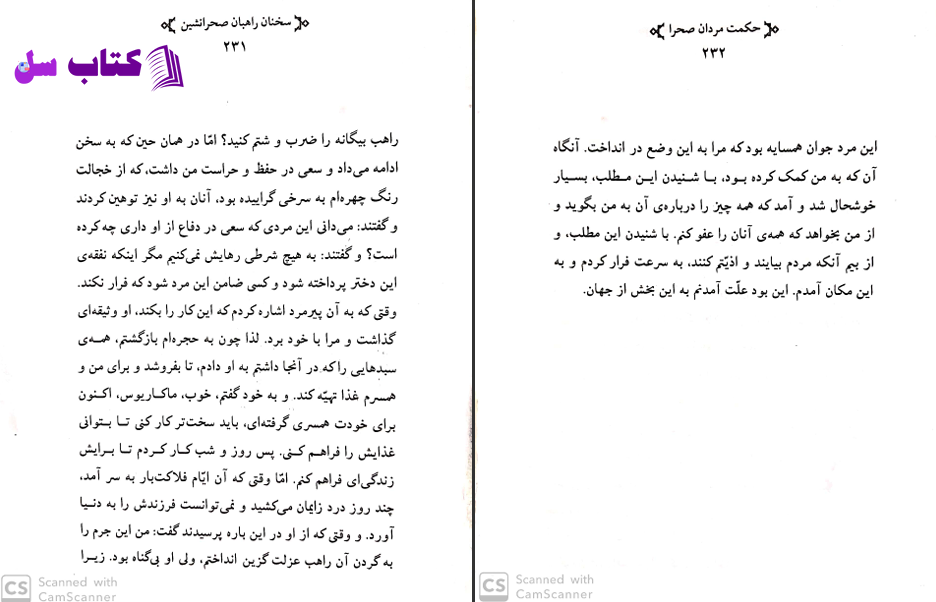 سخنان راهبان صحرانشین
۲۳۱
کتاب سل
راهب بیگانه را ضرب و شتم کنید؟ امّا در همان حین که به سخن
ادامه می‌داد و سعی در حفظ و حراست من داشت، که از خجالت
رنگ چهره‌ام به سرخی گراییده بود، آنان به او نیز توهین کردند
و گفتند: می‌دانی این مردی که سعی در دفاع از او داری چه کرده
است؟ و گفتند: به هیچ شرطی رهایش نمی‌کنیم مگر اینکه نفقه‌ی
این دختر پرداخته شود و کسی ضامن این مرد شود که فرار نکند.
وقتی که به آن پیرمرد اشاره کردم که این کار را بکند، او وثیقه‌ای
گذاشت و مرا با خود برد. لذا چون به حجره‌ام بازگشتم، همه‌ی
سبدهایی را که در آنجا داشتم به او دادم، تا بفروشد و برای من و
همسرم غذا تهیّه کند. و به خود گفتم، خوب، ماکاریوس، اکنون
برای خودت همسری گرفته‌ای، باید سخت‌تر کار کنی تا بتوانی
غذایش را فراهم کنی. پس روز و شب کار کردم تا برایش
زندگی‌ای فراهم کنم. امّا وقتی که آن ایّام فلاکت‌بار به سر آمد،
چند روز درد زایمان می‌کشید و نمی‌توانست فرزندش را به دنیا
آورد. و وقتی که از او در این باره پرسیدند گفت: من این جرم را
به گردن آن راهب عزلت گزین انداختم، ولی او بی‌گناه بود. زیرا
CS Scanned with
CamScanner
حکمت مردان صحرا
۲۳۲
این مرد جوان همسایه بود که مرا به این وضع در انداخت. آنگاه
آن که به من کمک کرده بود، با شنیدن این مطلب، بسیار
خوشحال شد و آمد که همه چیز را درباره‌ی آن به من بگوید و
از من بخواهد که همه‌ی آنان را عفو کنم. با شنیدن این مطلب، و
از بیم آنکه مردم بیایند و اذیّتم کنند، به سرعت فرار کردم و به
این مکان آمدم. این بود علّت آمدنم به این بخش از جهان.
CS Scanned with
CamScanner